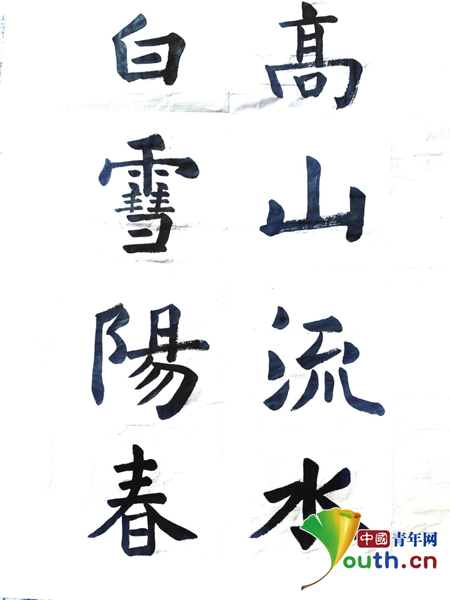 高山流水
白雪陽春
中國青年网
youth.cn